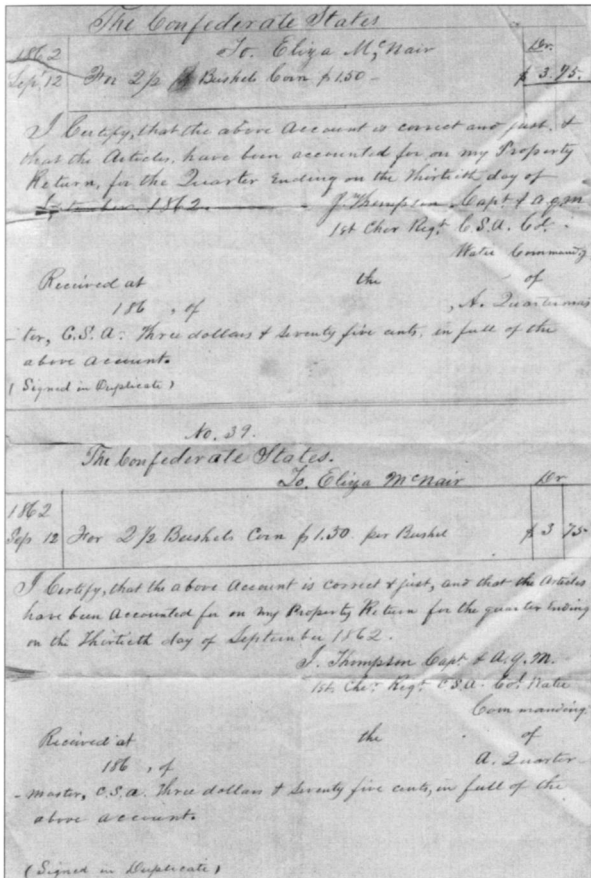 The Confederate States
1862 To. Eliza McNair Dr.
Sep. 12 For 2 1/2 Bushels Corn $1.50 - $3.75.
I Certify, that the above Account is correct and just, &
that the Articles, have been accounted for on my Property
Return, for the Quarter Ending on the Thirtieth day of
September 1862. J. Thompson Capt & A.Q.M
1st Cher Regt. C.S.A. Col.
Watie Commandg
Received at the of
186 , of , A. Quartermas
-ter, C.S.A. Three dollars & Seventy five cents, in full of the
above account.
(Signed in Duplicate)
No. 39.
The Confederate States.
To. Eliza McNair Dr
1862
Sep. 12 For 2 1/2 Bushels Corn $1.50 per Bushel $3 75-
I Certify, that the above Account is correct & just, and that the Articles
have been Accounted for on my Property Return for the quarter Ending
on the Thirtieth day of September 1862.
J. Thompson Capt & A.Q.M.
1st. Cher. Regt. C.S.A. Col. Watie
Commanding.
Received at the of
186 , of A. Quarter-
-master, C.S.A. Three dollars & Seventy five cents, in full of the
above account.
(Signed in Duplicate)